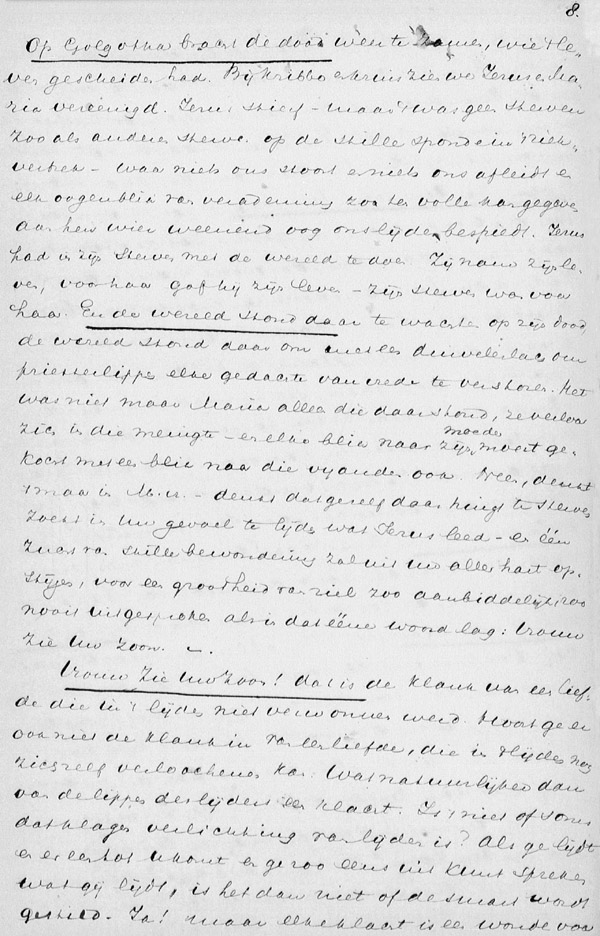 8.
Op Golgotha bracht de dood weer te zamen, wie 't le-
ven gescheiden had. Bij kribbe en kruis zien we Jezus en Ma-
ria vereenigd. Jezus stierf – maar 't was geen sterven
zooals anderen sterven op de stille sponde in 't ziek-
vertrek – waar niets ons stoort en niets ons afleidt en
elk oogenblik van verademing zoo ten volle kan gegeven
aan hen wier weenend oog ons lijden bespiedt. Jezus
had in zijn sterven met de wereld te doen. Zij nam zijn le-
ven, voor haar gaf hij zijn leven – zijn sterven was voor
haar. En de wereld stond daar te wachten op zijn dood
de wereld stond daar om met een duivelenlach om
priesterlippen elke gedachte van vrede te verstoren. Het
was niet maar Maria alleen die daar stond, ze verloor
zich in die menigte – en elke blik naar zijn moeder moest ge-
kocht met een blik naar die vijanden ook. Neen, denkt
't maar in M. H. – denkt dat gezelf daar hingt te sterven
zoekt in uw gevoel te lijden wat Jezus leed – en één
zucht van stille bewondering zal uit uw aller hart op-
stijgen, voor een grootheid van ziel zoo aanbiddelijk, zoo
nooit uitgesproken als in dat ééne woord lag: Vrouw
zie uw zoon. –.
Vrouw zie uw zoon! dat is de klank van een lief-
de die in 't lijden niet verwonnen werd. Hoort ge er
ook niet de klank in van een liefde, die in 't lijden nog
zichzelf verloochenen kan. Wat natuurlijker dan
van de lippen des lijders een klacht. Is 't niet of soms
dat klagen verlichting van lijden is? Als ge lijdt
en er een hart u hoort en ge zoo eens uit kunt spreken
wat gij lijdt, is het dan niet of de smart wordt
gestild. Ja! maar elke klacht is een wonde voor